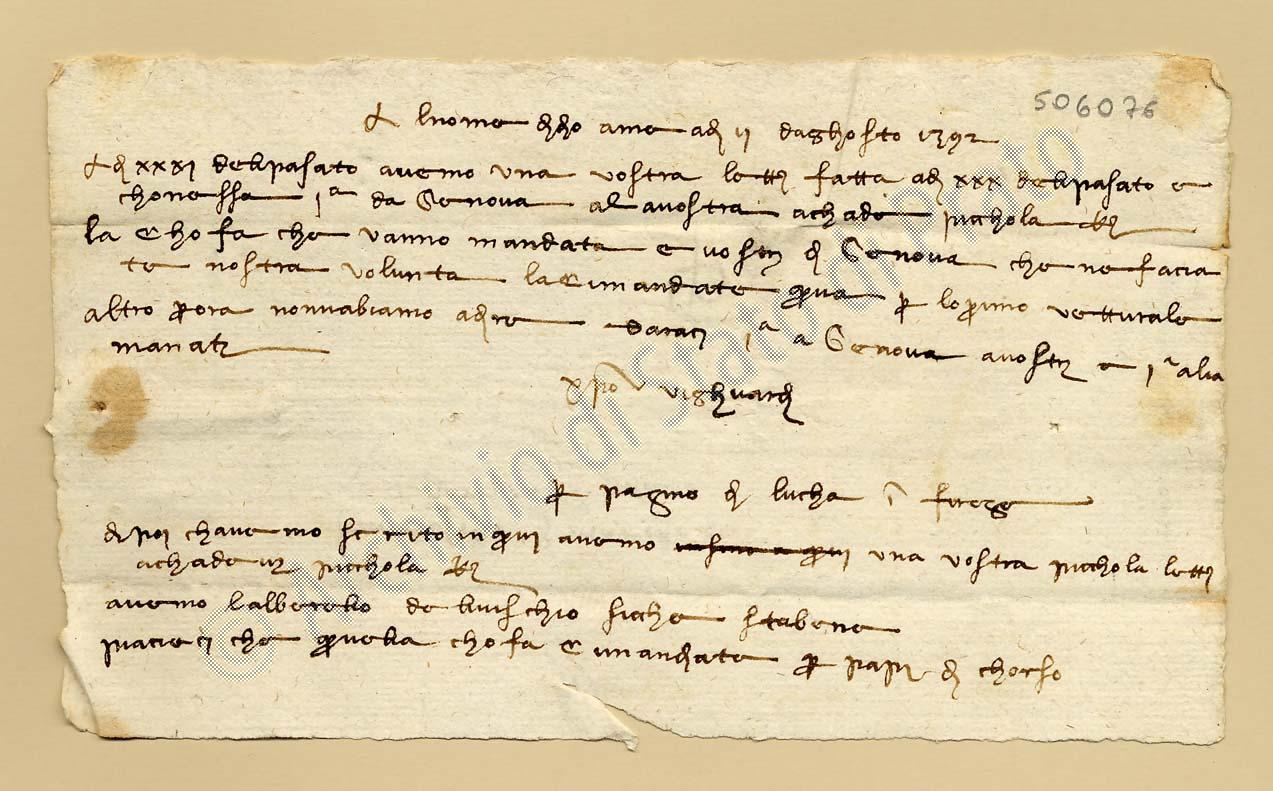 506076
Al nome di dio ame adi II daghosto 1392
Adi XXXI delpasato avemo una vostra lettera fatta adi XXX delpasato e
chonessa 1ª da Genova alavostra achade picchola
la chosa che vanno mandata e vostri di Genova che ne facia
te nostra volunta laci mandate qua per lo primo vetturale
altro per ora nonnabiamo adire daraci 1ª a Genova avostri e 1ª alia
manati
vighuardi
per pagino di lucha firenze
dipoi chavemo scrito inqui avemo una vostra picchola lettera
achade picchola
avemo lalberello de vischio sicche stabene
piacieci che quella chosa ci mandiate per papi di chorso
© Archivio di Stato di Prato